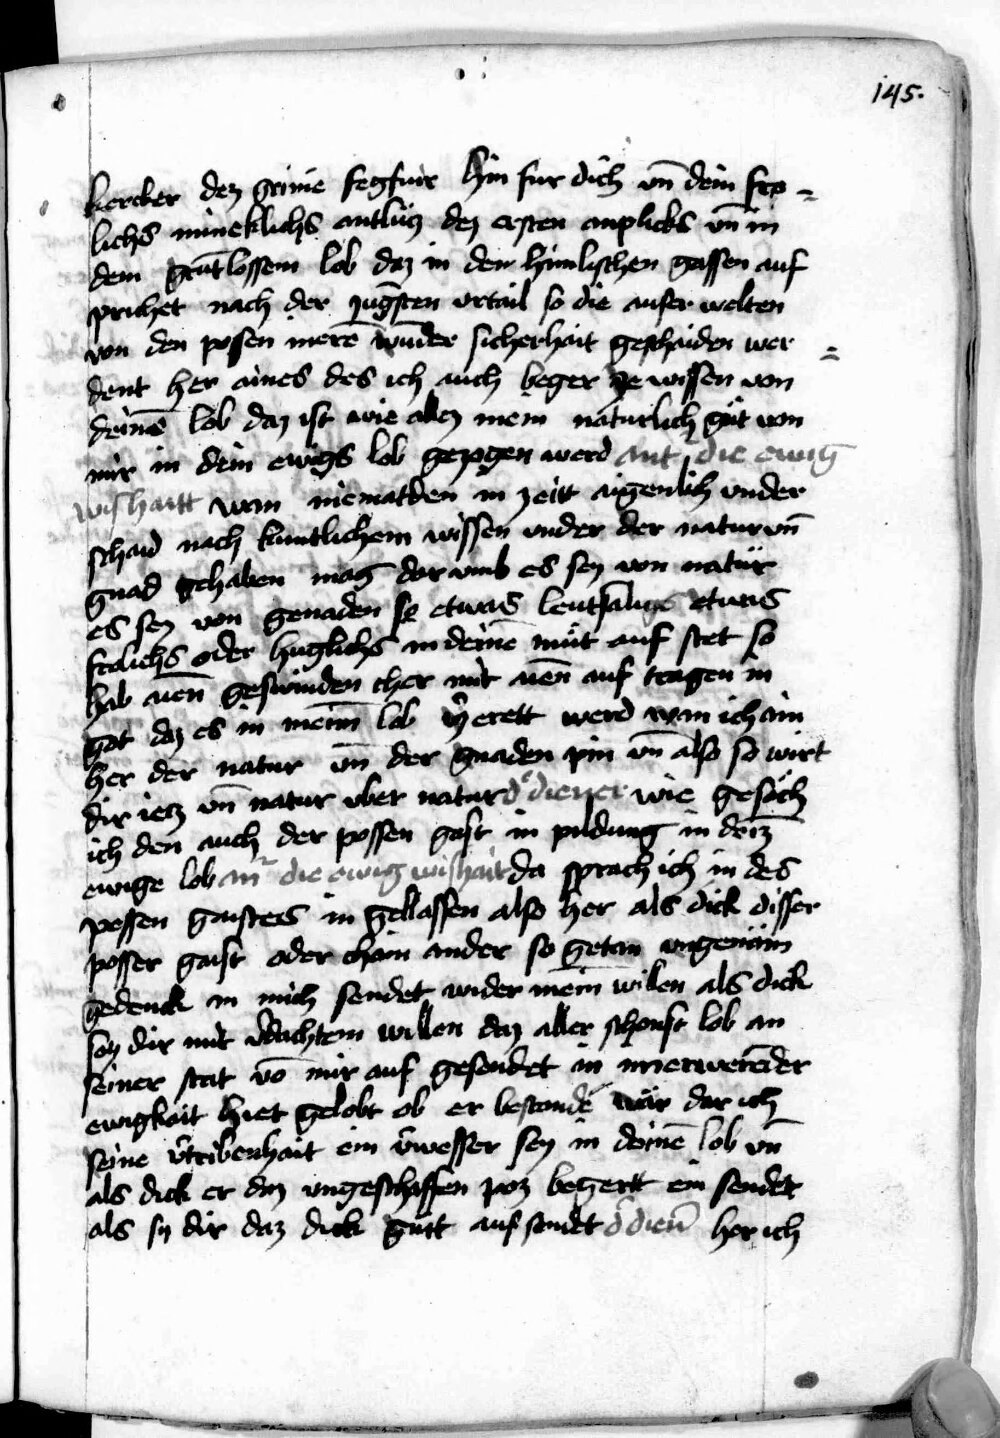 145.
kercker dez grime fegfuir hin fur dich vn̄ dein fro =
lichs mineklichs antlücz dez ersten anplicks vn̄ in
dem grūtlossem lob daz in der himlischen gassen auf
prichet nach der jūgsten vrtail so die auser welten
von den possen mit merē wunder sicherhait geschaiden wer =
dent her aines des ich auch beger ze wissen von
deinē lob daz ist wie allez mein naturlich güt von
mir in dein ewigs lob gezogen werd ant die ewig
wishaitt wan niematden in zeitt aigenlich vnder
schaid nach kuntlichem wissen vnder der natur vn̄
gnad gehaben mag dar vmb es sey von natür
es sey von genaden so etwas leutsāligs etwas
frolichs oder huglichs in deinē müt auf stet so
hab aten geswinden cher mit aten auf tragen in
got daz es in meim lob v̄zerett werd wan ich ain
her der natur vn̄ der gnaden pin vn̄ also so wirt
dir iecz vn̄ natur vber natur d diener wie gesäch
ich den auch der possen gaist in pildung in dein
ewige lob an̄ die ewig wishait da sprach ich in des
possen gaistes in gellassen also her als dick disser
posser gaist oder chain ander so getan vngenäm
gedenck in mich sendet wider mein willen als dick
sey dir mit v̄dachtem willen daz aller schonst lob an
seiner stat vō mir auf gesendet in imerwerēder
ewigkait hiet gelobt ob er bestandē wär dar ich
seine v̄tribenhait ein v̄wesser sey in deinē lob vn̄
als dick er daz vngeschaffen poz begertt ein sendet
als sy dir daz dick gütt auf sendet d dien̄ her ich